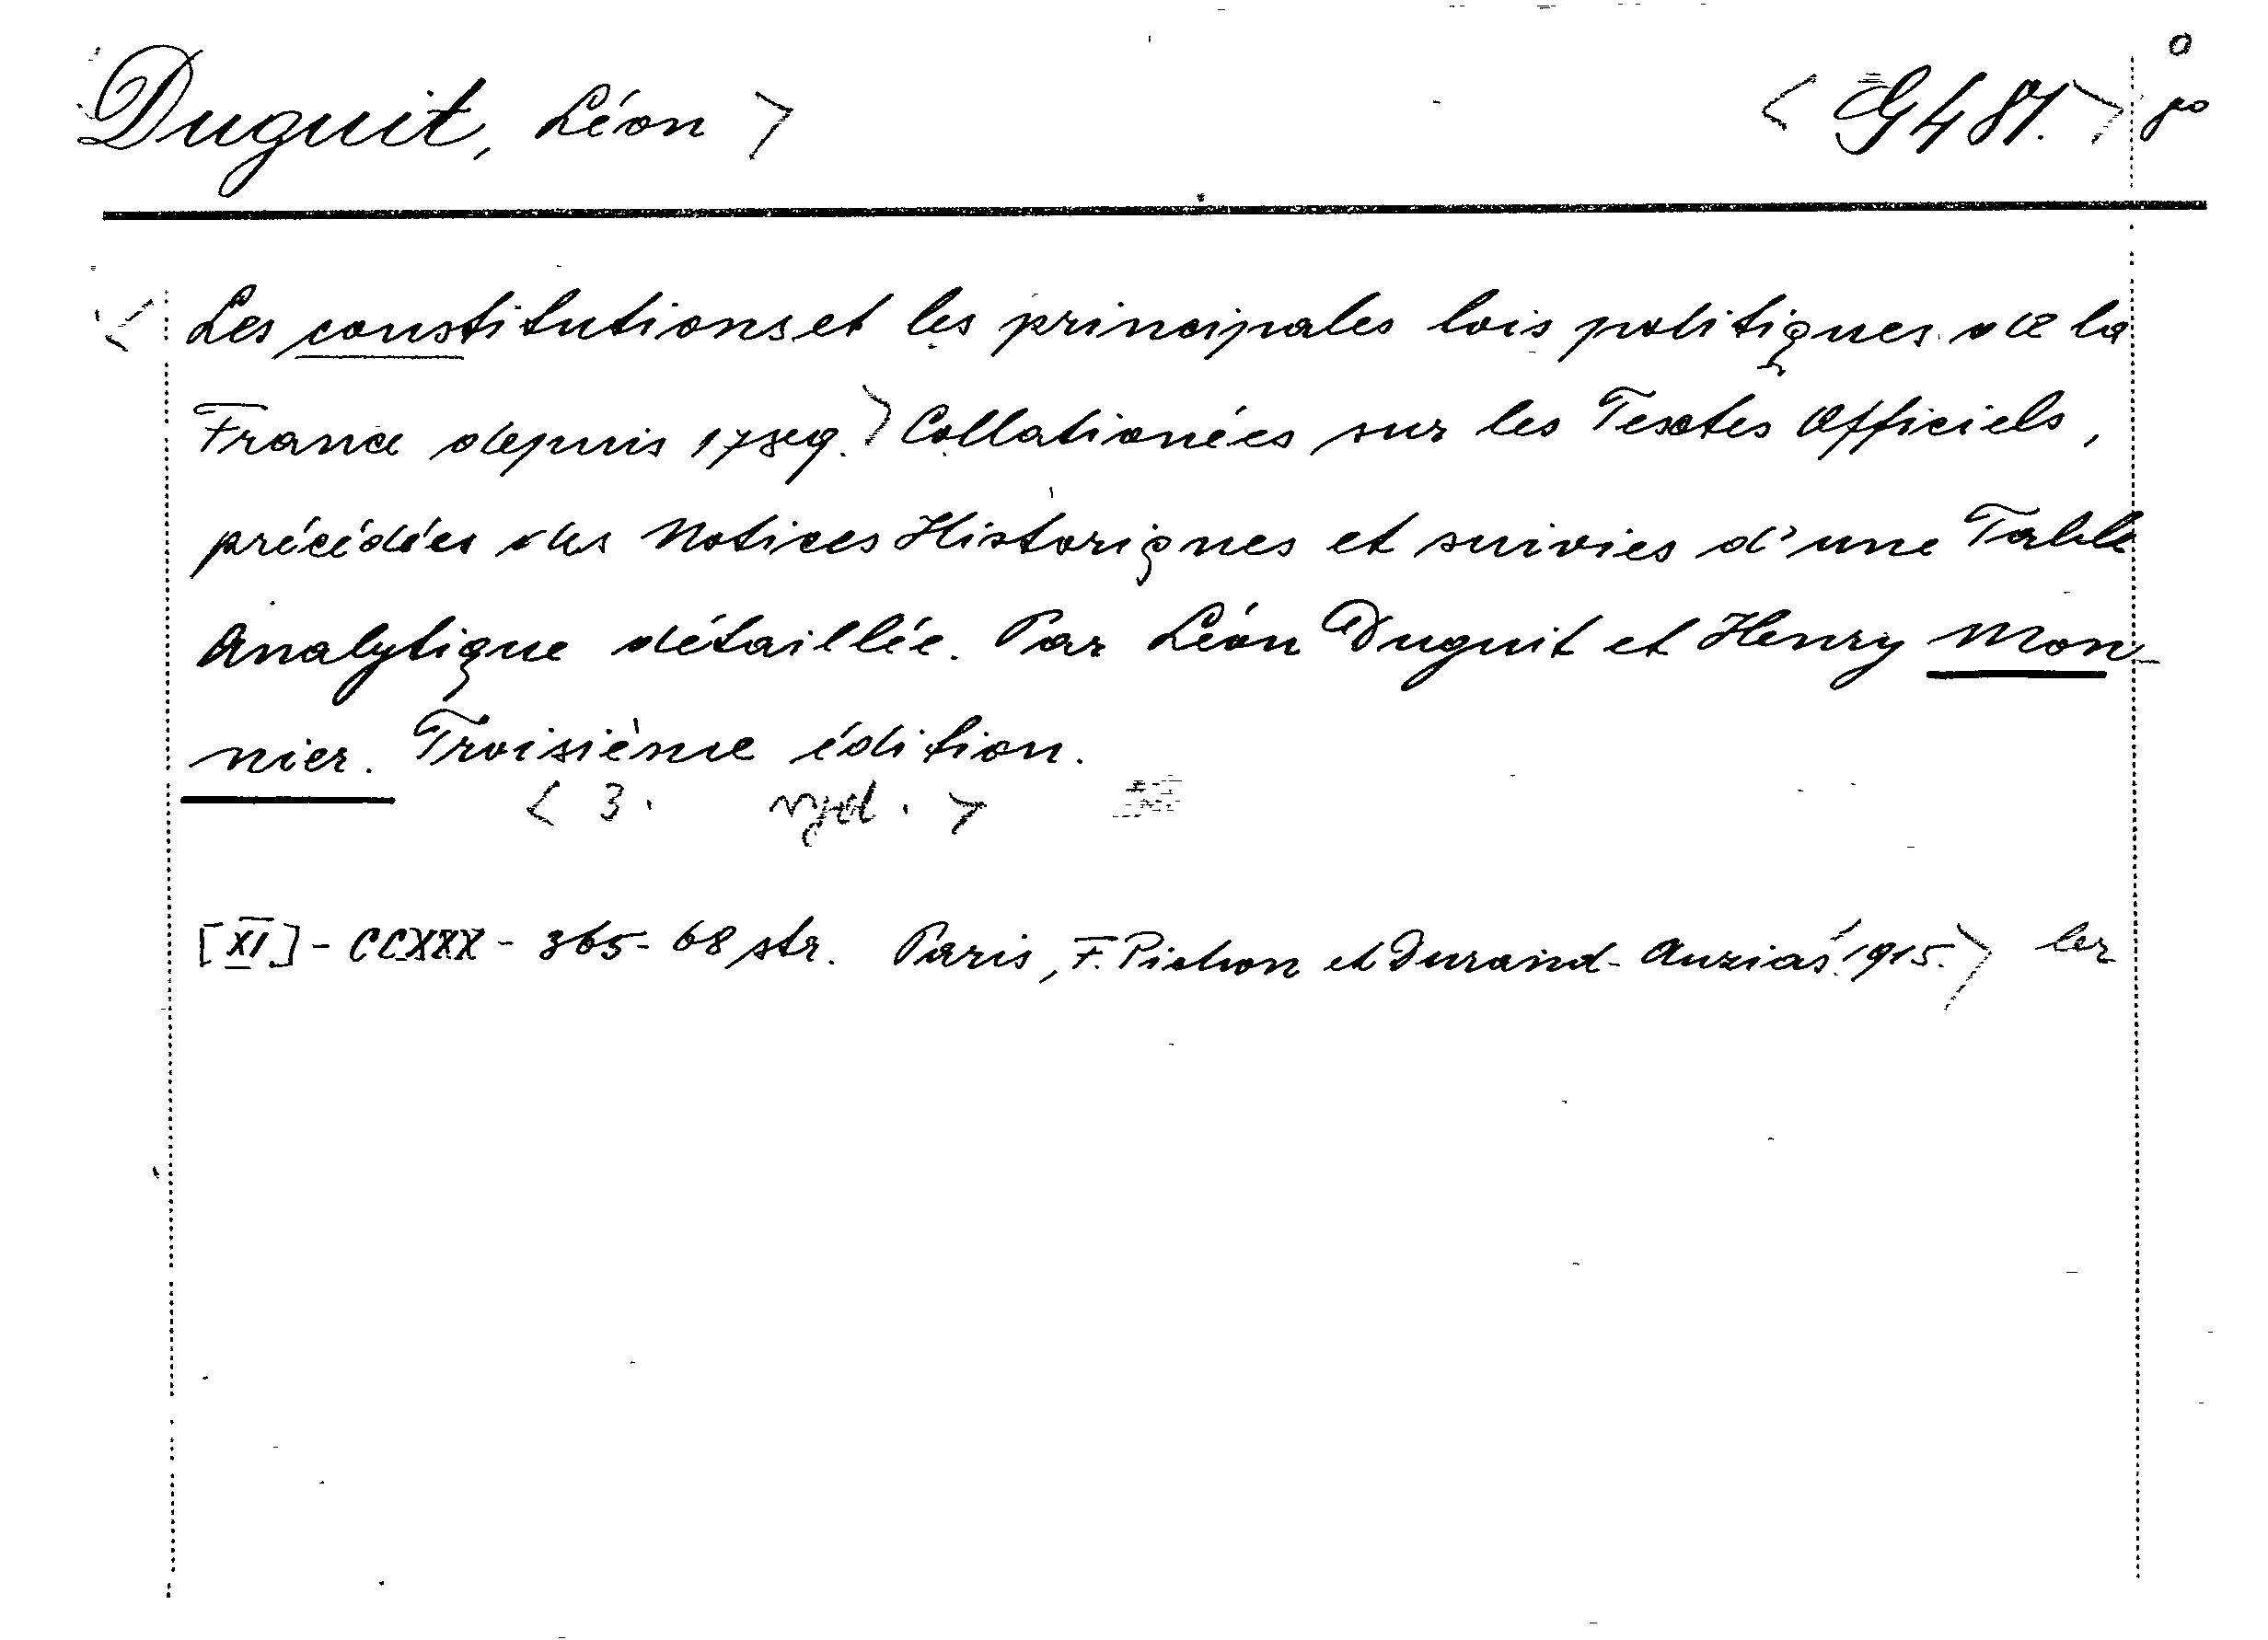 Duguit, Léon > < G 481. > o
Les constitutions et les principales lois politiques de la
France depuis 1789. > Collationées sur les Textes Officiels,
précédées des Notices Historiques et suivies d'une Table
Analytique détaillée. Par Léon Duguit et Henry Mon-
nier. Troisième édition.
< 3. vyd. >
[XI] - CCXXX - 365 - 68 str. Paris, F. Pichon et Durand-Auzias 1915. >